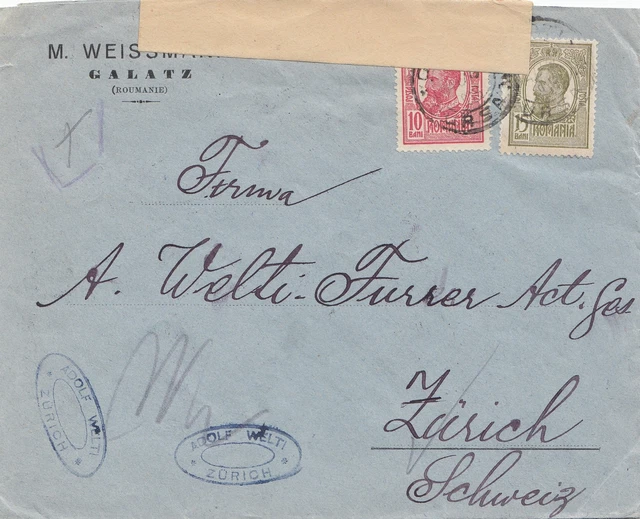 M. WEISSMAN
GALATZ
(ROUMANIE)
10 BANI ROMANIA
15 BANI ROMANIA
Firma
A. Welti-Furrer Act. Ges
Zürich
Schweiz
ADOLF WELTI
* ZÜRICH *
ADOLF WELTI
* ZÜRICH *